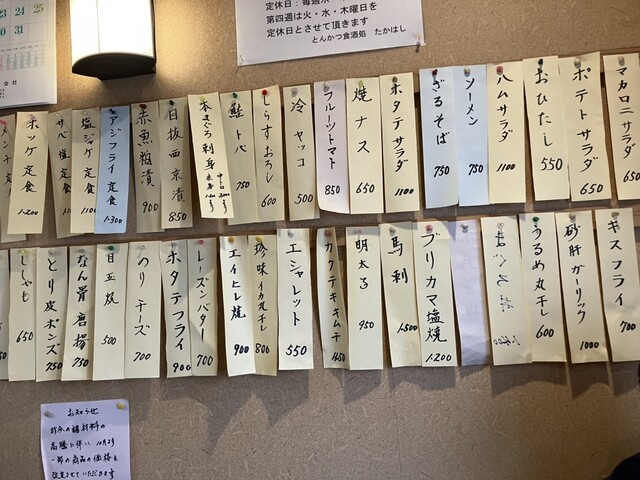 23 24 25
30 31
第四週は火・水・木曜日を
定休日とさせて頂きます
とんかつ食酒処 たかはし
マカロニサラダ 650
ポテトサラダ 650
おひたし 550
ハムサラダ 1100
ソーメン 750
ざるそば 750
ホタテサラダ 1100
焼ナス 650
フルーツトマト 850
冷ヤッコ 500
しらすおろし 600
鮭トバ 750
本まぐろ刺身
目抜西京漬 850
赤魚粕漬 900
アジフライ定食 1,300
塩ジャケ定食 1100
サバ塩定食
ホッケ定食 1,200
キスフライ 700
砂肝ガーリック 1000
うるめ丸干し 600
ブリカマ塩焼 1,200
馬刺 1,500
明太子 950
カクテキキムチ
エシャレット 550
珍味イカ丸干し 800
エイヒレ焼 900
レーズンバター 700
ホタテフライ 900
のりチーズ 700
目玉焼 500
なん骨唐揚 750
とり皮ポンズ 750
ししゃも 650
お知らせ
昨今の諸材料の
高騰に伴い、10月より
一部の商品の価格を
改定させていただきます